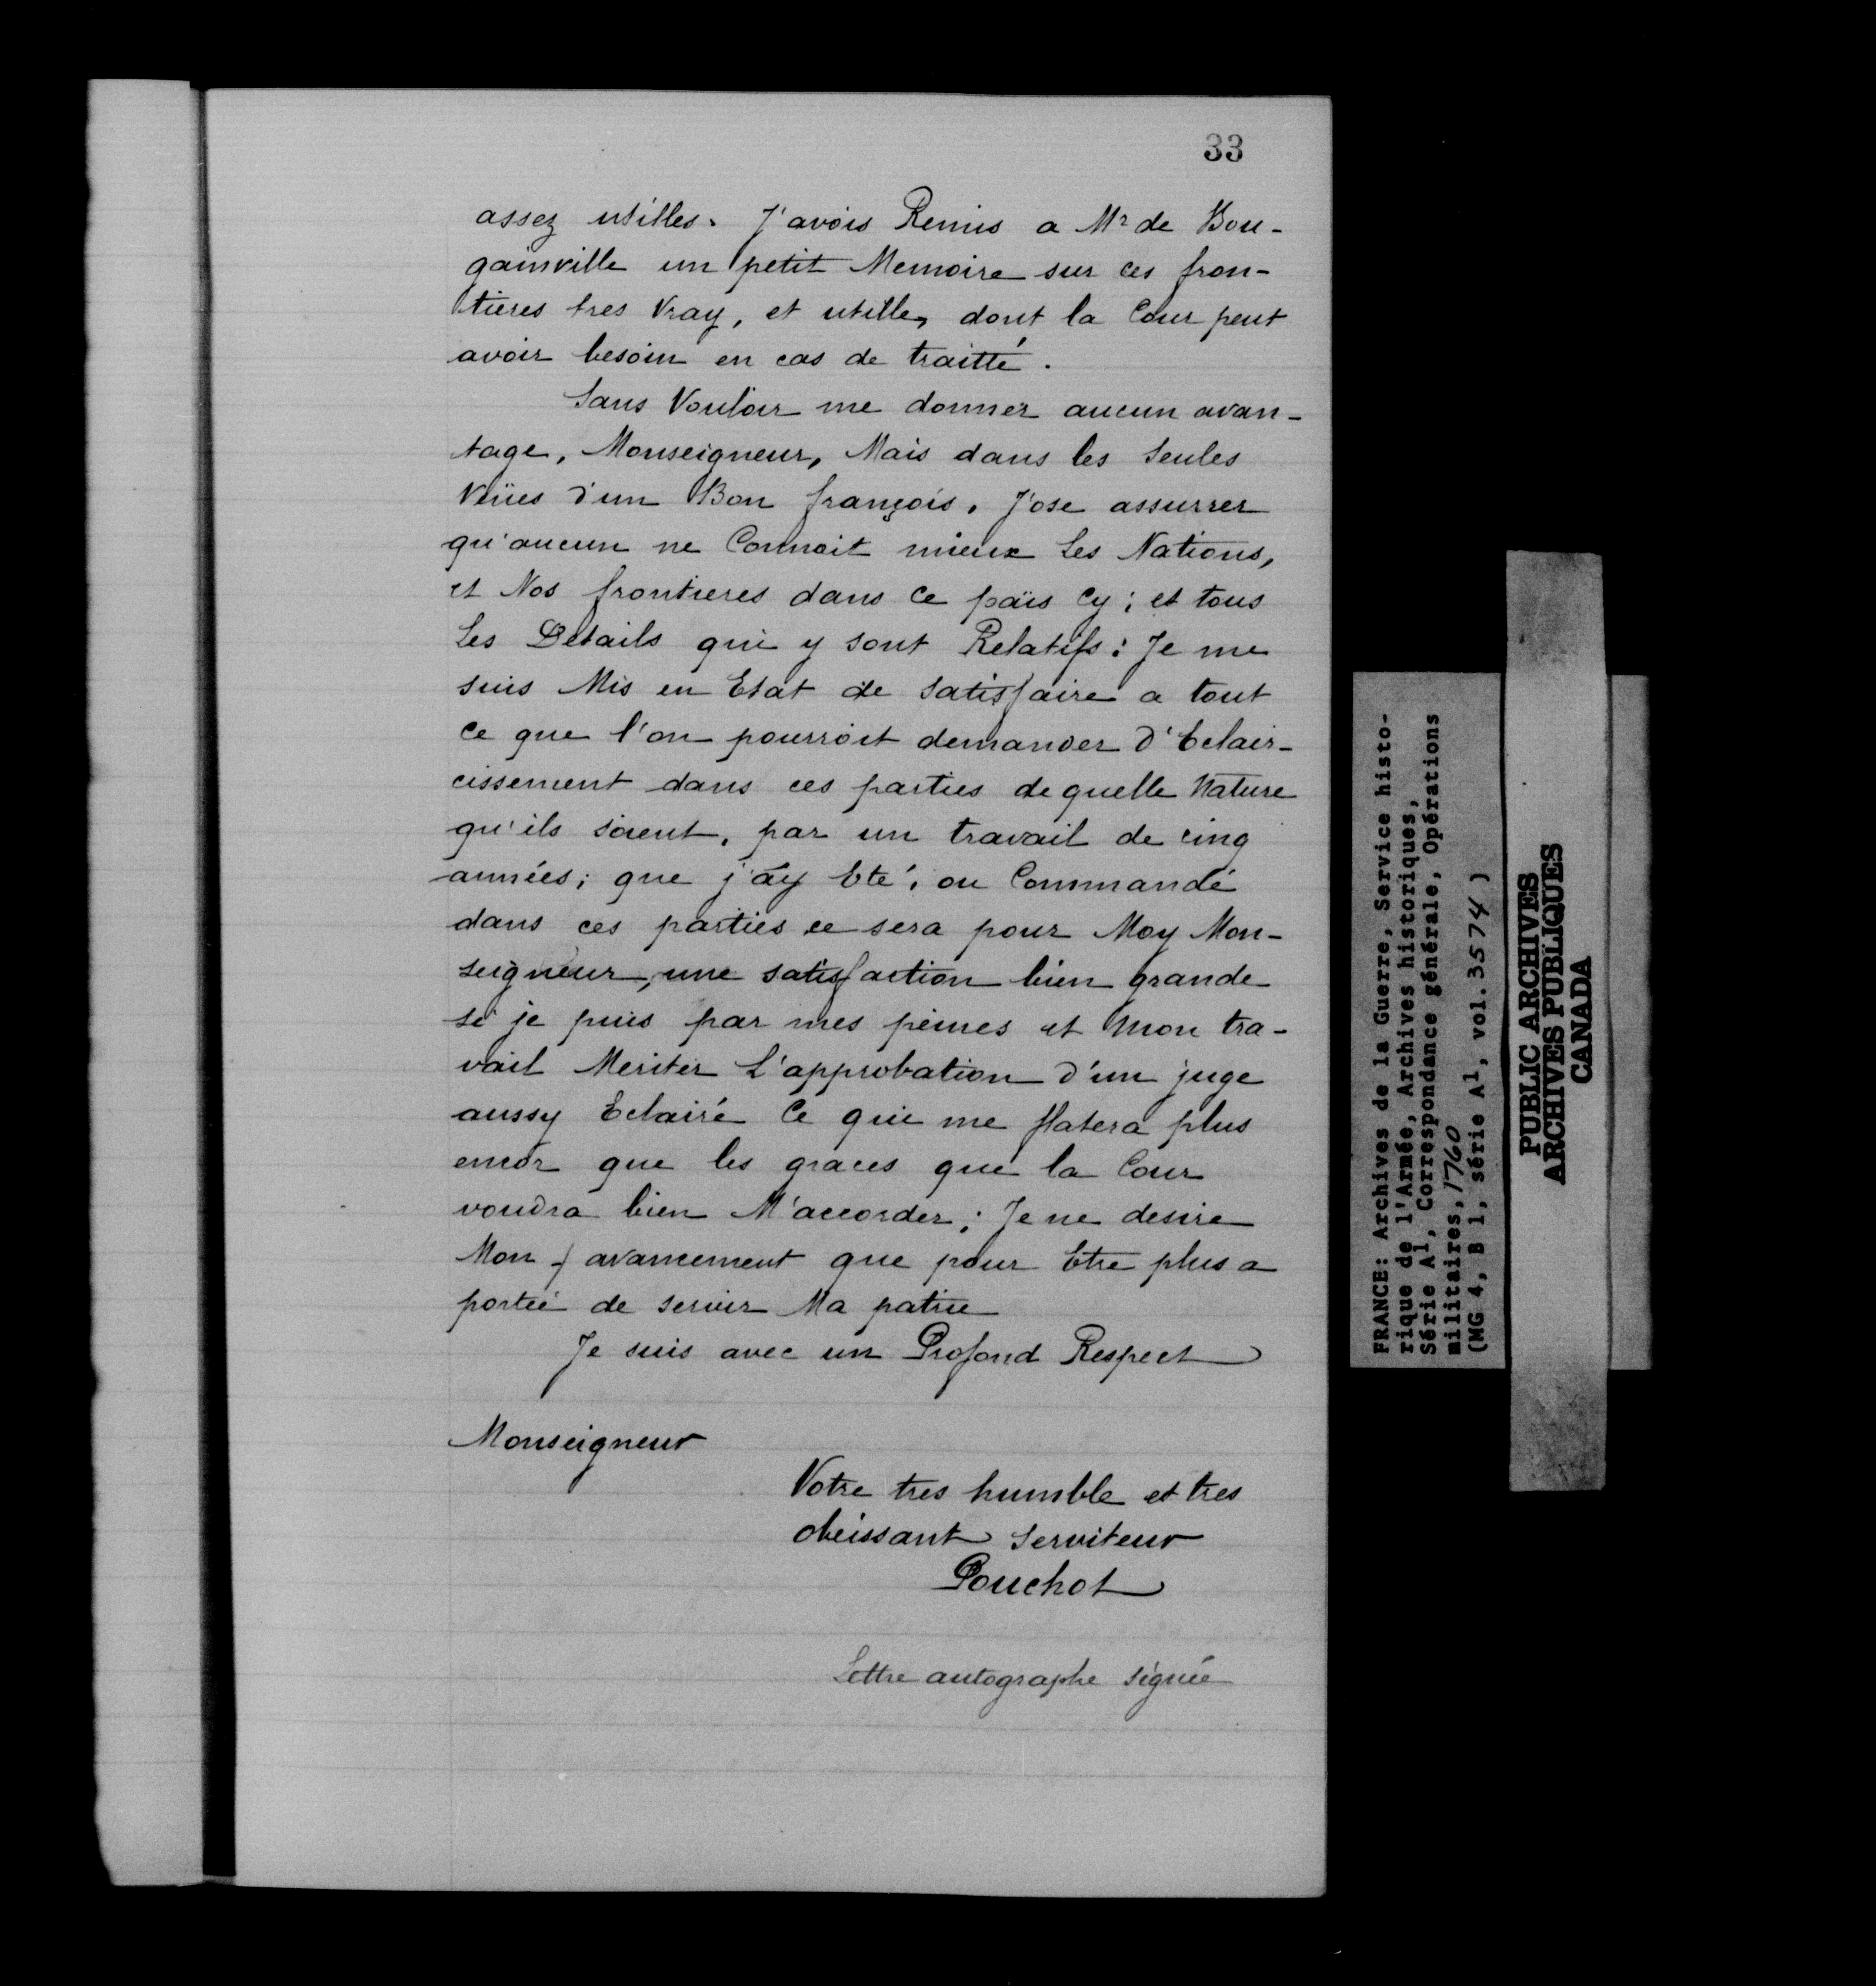 33
assez utilles. J'avois Remis a Mr de Bou-
gainville un petit Memoire sur ces fron-
tieres tres Vray, et utille, dont la Cour peut
avoir besoin en cas de traitté.
Sans Vouloir me donner aucun avan-
tage, Monseigneur, Mais dans les Seules
Veües d'un Bon françois, J'ose assurrer
qu'aucun ne Connoit mieux Les Nations,
et Nos frontieres dans ce païs Cy; et tous
Les Details qui y sont Relatifs: Je me
suis Mis en Etat de Satisfaire a tout
ce que l'on pourroit demander d'Eclair-
cissement dans ces parties de quelle Nature
qu'ils soient, par un travail de cinq
années; que j'ay Eté, ou Commandé
dans ces parties ce sera pour Moy Mon-
seigneur, une satisfaction bien grande
si je puis par mes peines et Mon tra-
vail Meriter L'approbation d'un juge
aussy Eclairé Ce qui me flatera plus
encor que les graces que la Cour
voudra bien M'accorder; Je ne desire
Mon avancement que pour Etre plus a
porteé de servir Ma patrie
Je suis avec un Profond Respect
Monseigneur
Votre tres humble et tres
obeissant Serviteur
Pouchot
Lettre autographe signée
FRANCE: Archives de la Guerre, Service histo-
rique de l'Armée, Archives historiques,
Série A1, Correspondance générale, Opérations
militaires, 1760
(MG 4, B 1, série A1, vol. 3574 )
PUBLIC ARCHIVES
ARCHIVES PUBLIQUES
CANADA